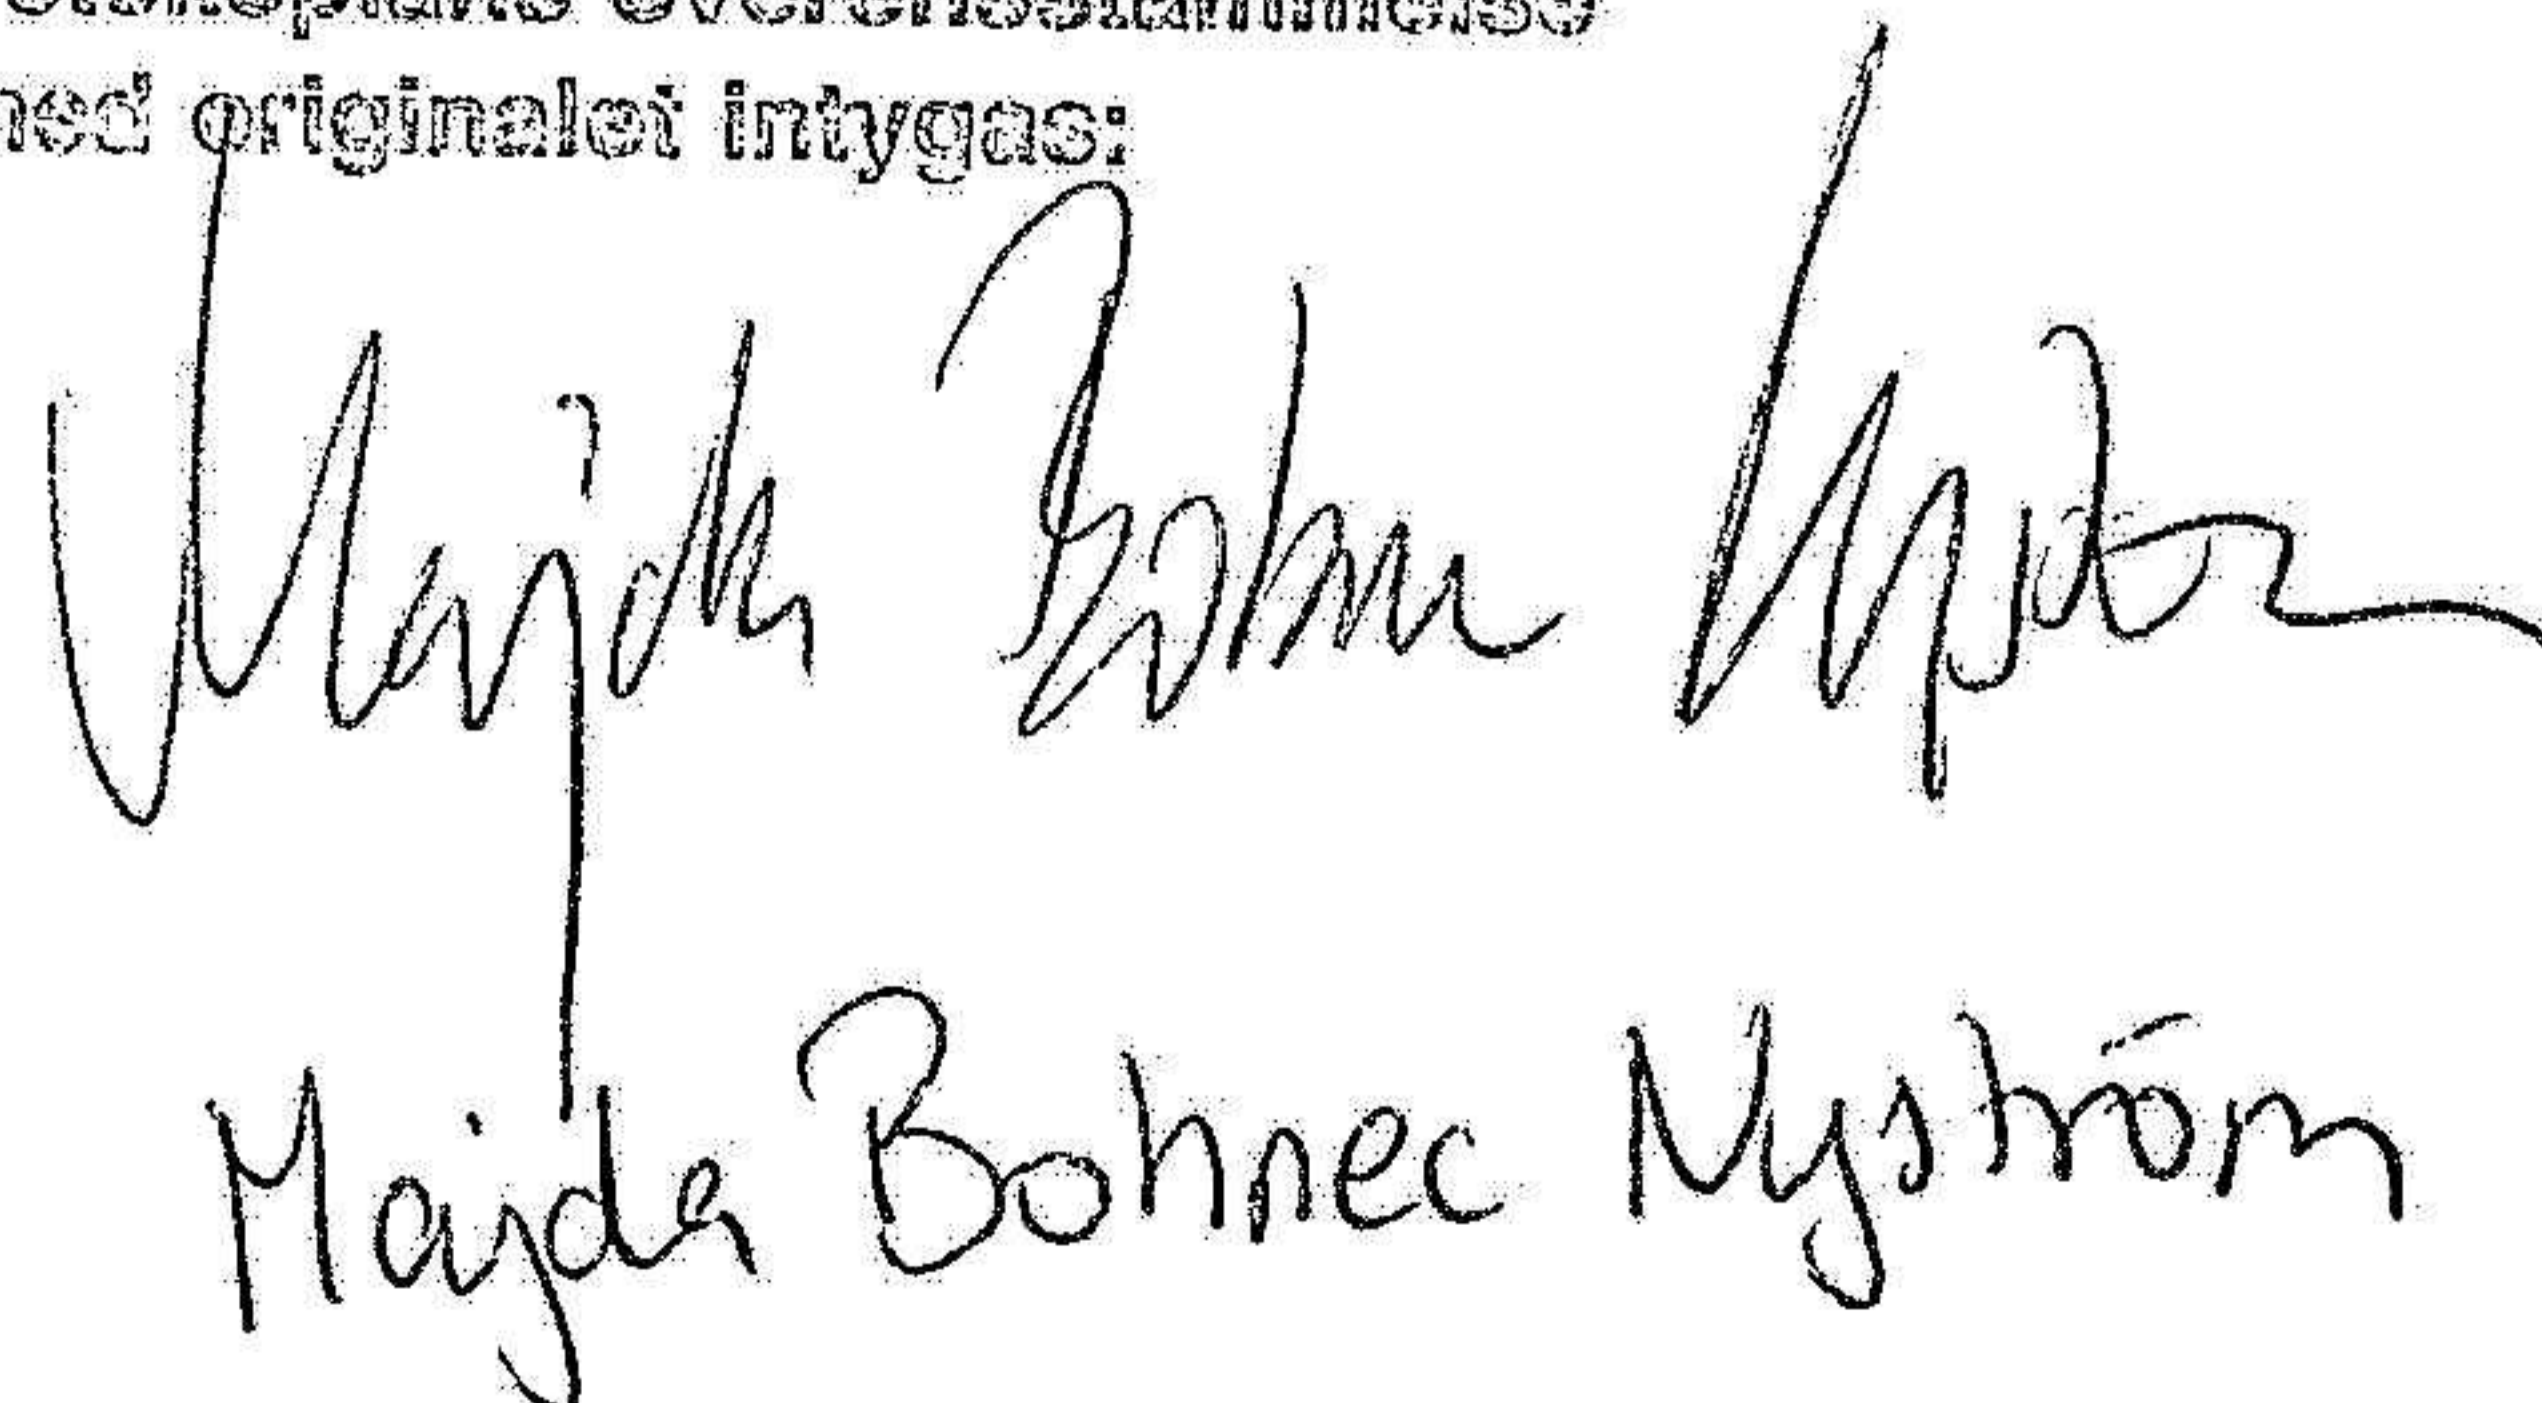 överensstämmelse
med originalet intygas:
Majda Bohnec Nyström
Majda Bohnec Nyström